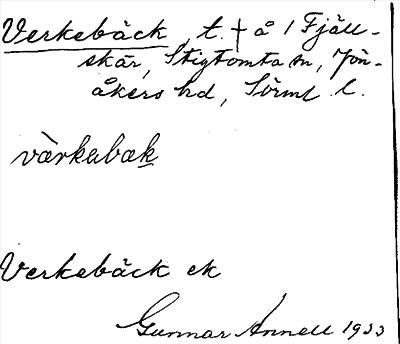 Verkebäck, t. † å / Fjäll-
skär, Stigtomta sn, Jön-
åkers hd, Sörml. l.
värkabæk
Verkebäck ek
Gunnar Annell 1933